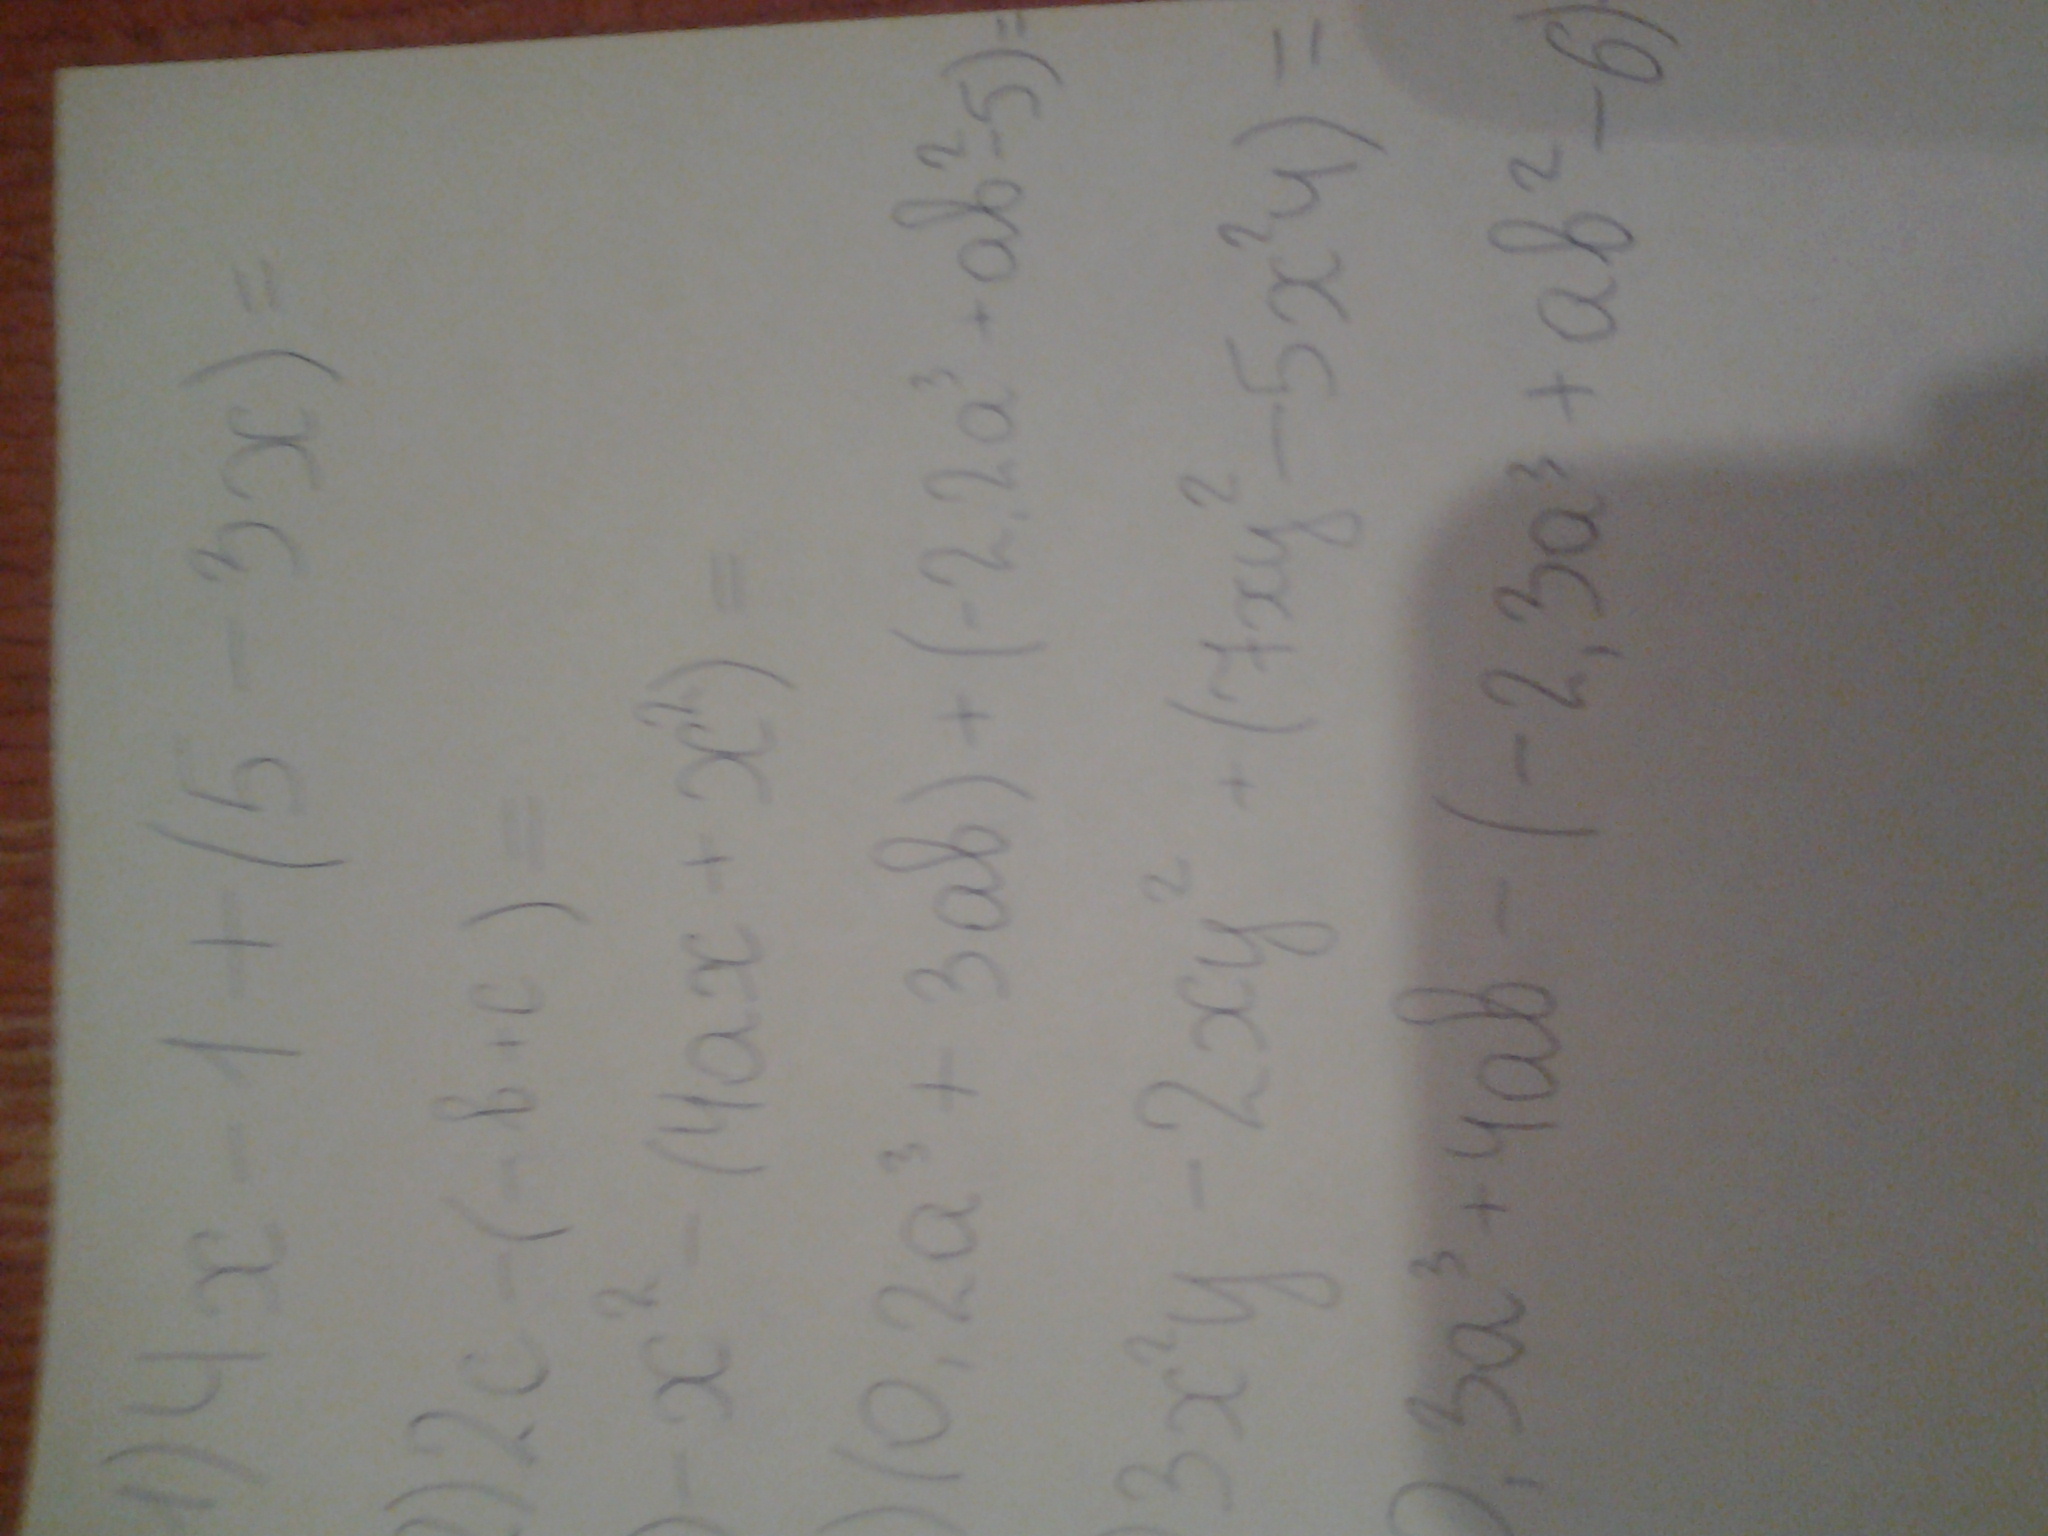 1) 4x - 1 + (5 - 3x) =
) 2c - (-b + c) =
) - x² - (4ax + x²) =
) (0,2a³ + 3ab) + (-2,2a³ + ab² - 5) =
) 3x²y - 2xy² + (7xy² - 5x²y) =
0,3a³ + 4ab - (-2,3a³ + ab² - 6)